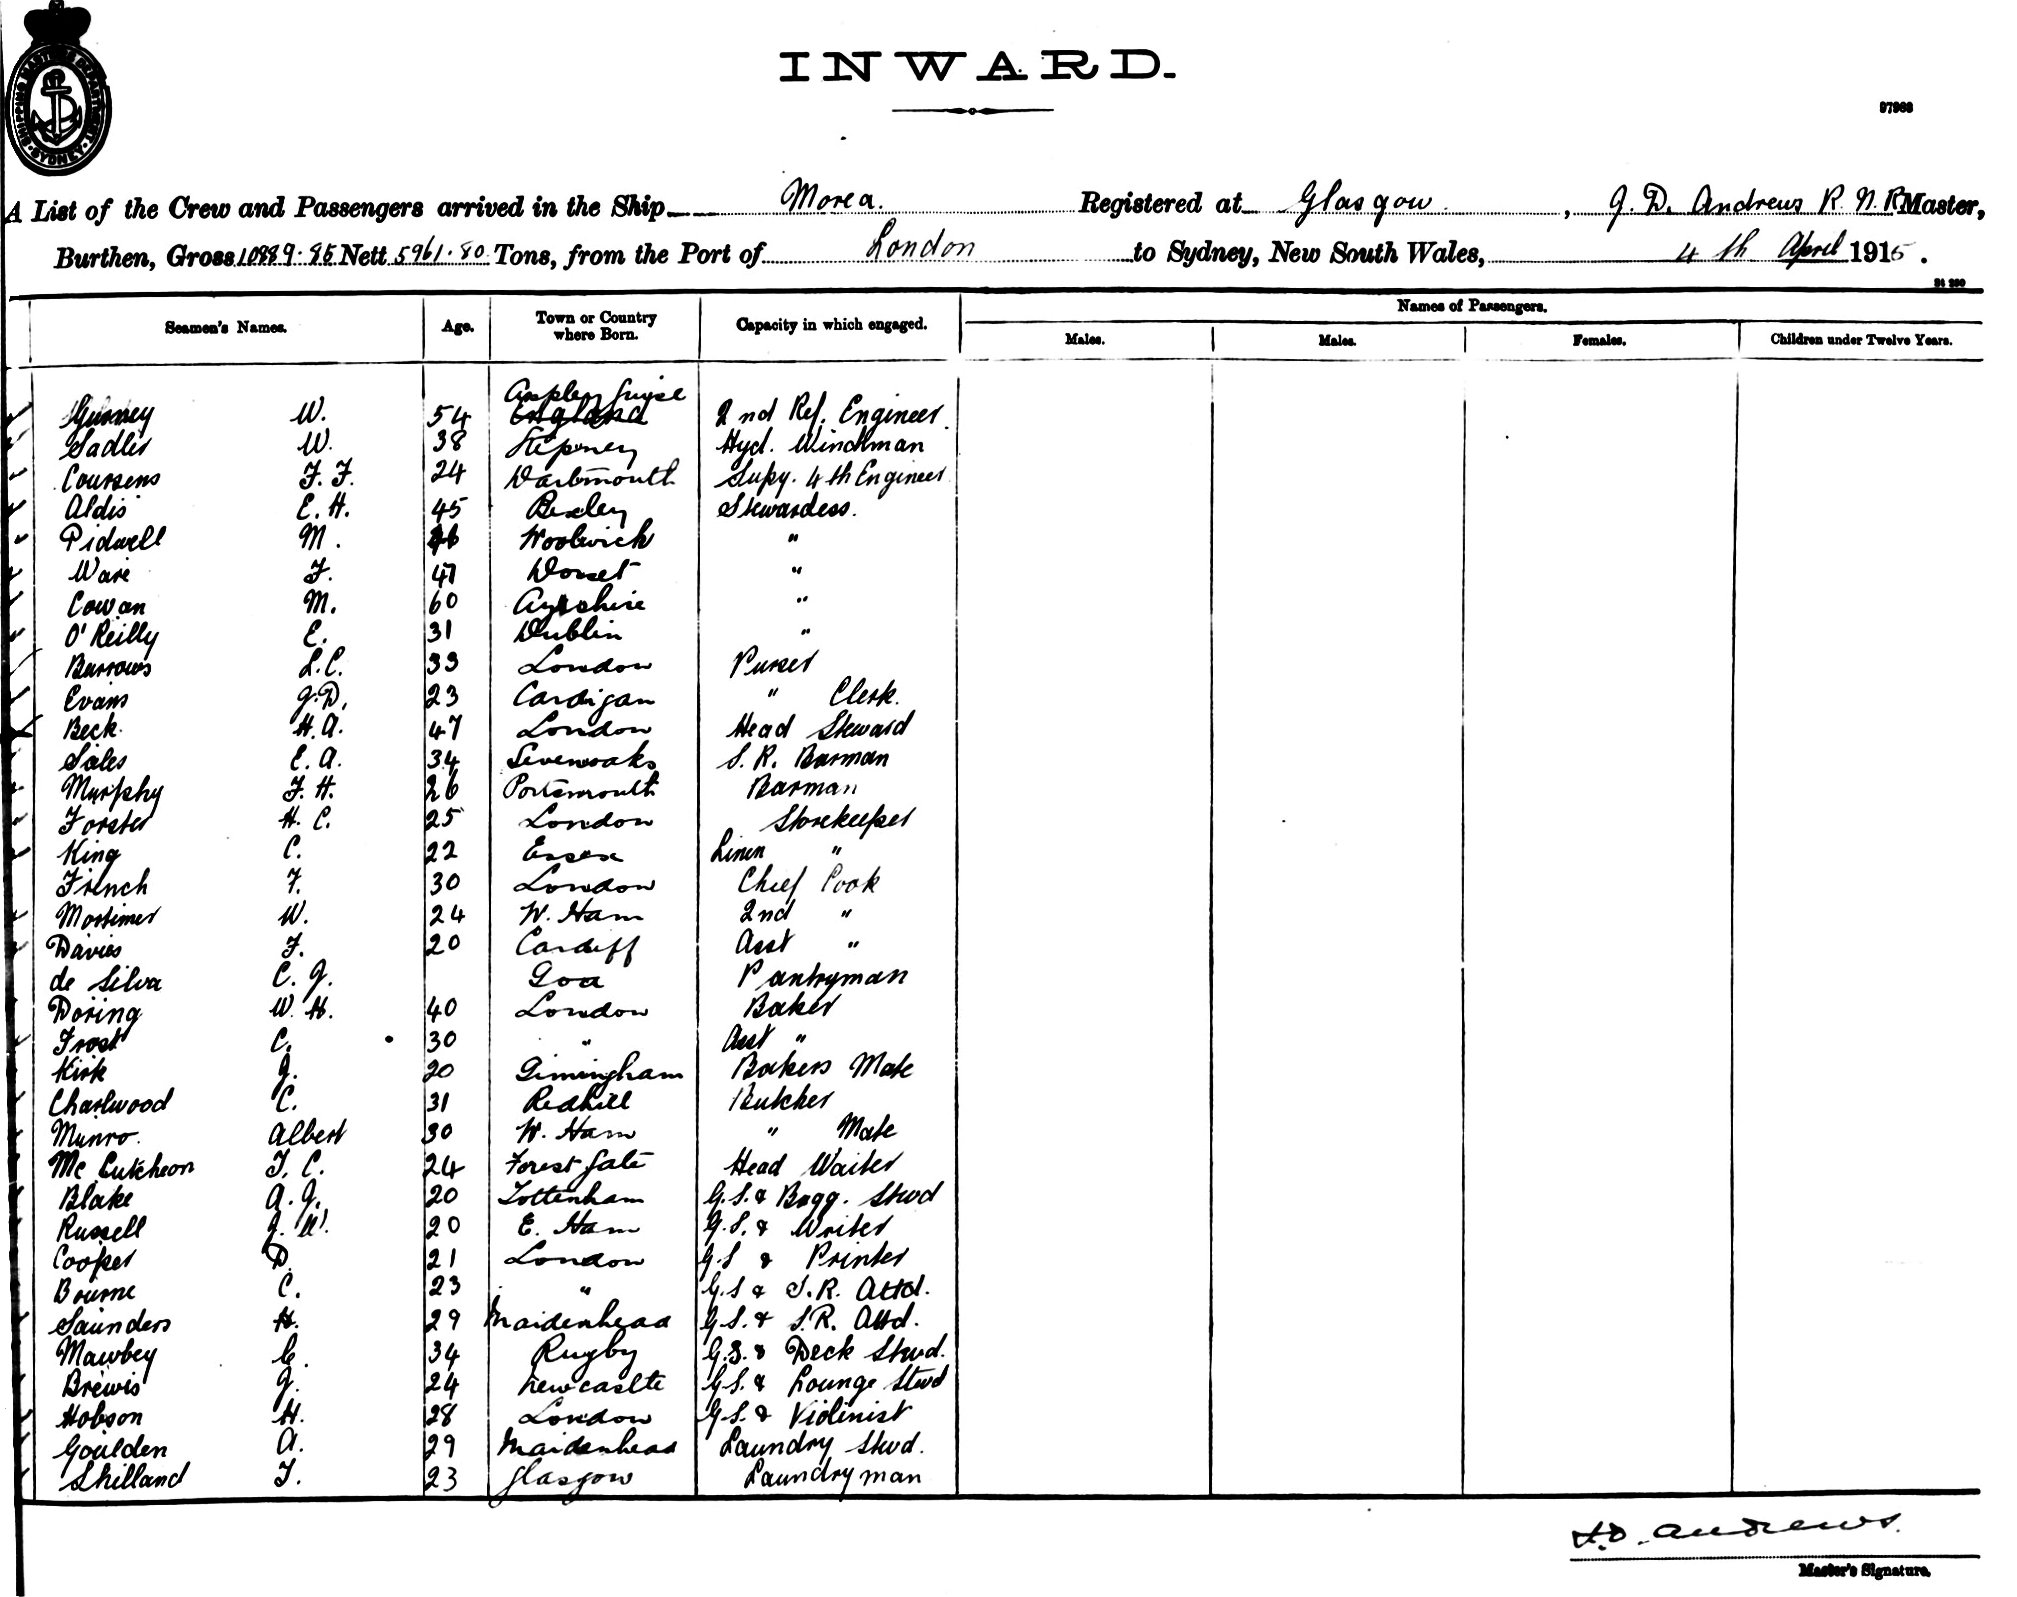 SHIPPING MASTER'S DEPARTMENT
SYDNEY
INWARD.
97988
A List of the Crew and Passengers arrived in the Ship Morea. Registered at Glasgow, J. D. Andrews R. N. R Master,
Burthen, Gross 10889.85 Nett 5961.80 Tons, from the Port of London to Sydney, New South Wales, 4th April 1915.
Names of Passengers.
Seamen's Names. Age. Town or Country where Born. Capacity in which engaged. Males. Males. Females. Children under Twelve Years.
Aspley Guise
Gurney W. 54 England 2nd Ref. Engineer
Sadler W. 38 Stepney Hyd. Winchman
Coursens F. F. 24 Dartmouth Supy. 4th Engineer
Aldis E. H. 45 Bexley Stewardess.
Pidwell M. Woolwich "
Ware F. 47 Dorset "
Cowan M. 60 Ayrshire "
O'Reilly E. 31 Dublin "
Barrows L. C. 33 London Purser
Evans J. D. 23 Cardigan " Clerk.
Beck H. A. 47 London Head Steward
Sales E. A. 34 Sevenoaks S. R. Barman
Murphy F. H. 26 Portsmouth Barman
Forster H. C. 25 London Storekeeper
King C. 22 Essex Linen "
French F. 30 London Chief Cook
Mortimer W. 24 W. Ham 2nd "
Davies F. 20 Cardiff Asst "
de Silva C. J. Goa Pantryman
Doring W. H. 40 London Baker
Frost C. 30 " Asst "
Kirk J. 20 Gimingham Bakers Mate
Charlwood C. 31 Redhill Butcher
Munro. Albert 30 W. Ham " Mate
Mc Cutcheon T. C. 24 Forest Gate Head Waiter
Blake A. J. 20 Tottenham G. S. & Bagg. Stwd
Russell J. W. 20 E. Ham G. S. & Writer
Cooper D. 21 London G. S & Printer
Bourne C. 23 " G. S & S. R. Attd.
Saunders H. 29 Maidenhead G. S. & S. R. Attd.
Mawbey C. 34 Rugby G. S. & Deck Stwd.
Brewis J. 24 Newcaslte G. S. & Lounge Stwd
Hobson H. 28 London G. S. & Violinist
Goulden A. 29 Maidenhead Laundry Stwd.
Shilland T. 23 Glasgow Laundryman
J. D. Andrews.
Master's Signature.